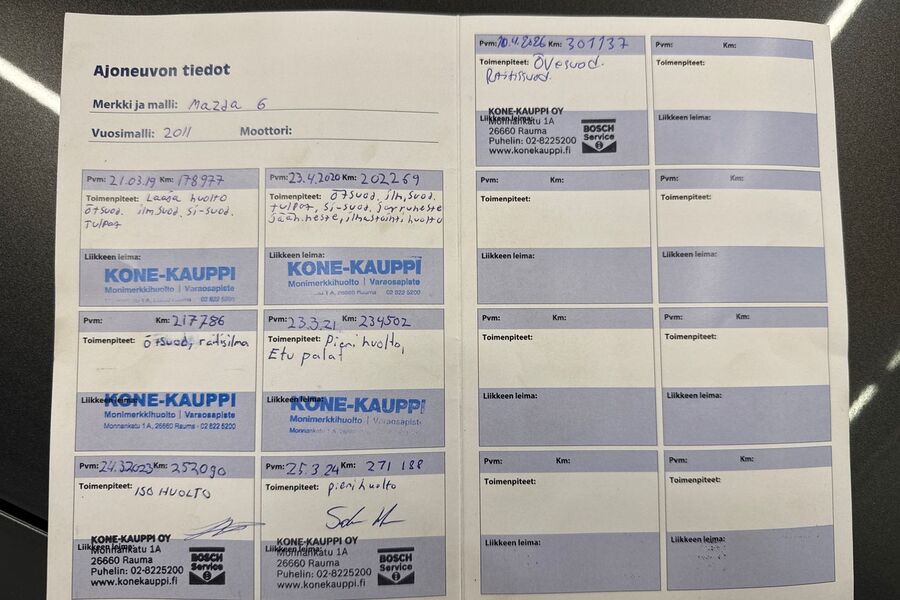 Ajoneuvon tiedot
Merkki ja malli: Mazda 6
Vuosimalli: 2011 Moottori:
Pvm: 21.03.19 Km: 178977
Toimenpiteet: Laaja huolto
ötsuod. ilm.suod. si-suod.
tulpat
Liikkeen leima:
KONE-KAUPPI
Monimerkkihuolto | Varaosapiste
02 822 5200
Pvm: 23.4.2020 Km: 202269
Toimenpiteet: ötsuod. ilm.suod.
tulpat, si-suod. jarruneste
jääh.neste, ilmastointi huolto
Liikkeen leima:
KONE-KAUPPI
Monimerkkihuolto | Varaosapiste
1 A, 26660 Rauma 02 822 5200
Pvm: Km: 217786
Toimenpiteet: ötsuod, raitisilma
Liikkeen leima:
KONE-KAUPPI
Monimerkkihuolto | Varaosapiste
Monnankatu 1 A, 26660 Rauma - 02 822 5200
Pvm: 23.3.21 Km: 234502
Toimenpiteet: Pieni huolto,
Etu palat
Liikkeen leima:
KONE-KAUPPI
Monimerkkihuolto | Varaosapiste
Pvm: 24.3.2023 Km: 252090
Toimenpiteet: ISO HUOLTO
Liikkeen leima:
KONE-KAUPPI OY
Monnankatu 1A
26660 Rauma
Puhelin: 02-8225200
www.konekauppi.fi
BOSCH
Service
Pvm: 25.3.24 Km: 271 188
Toimenpiteet: pieni huolto
Liikkeen leima:
KONE-KAUPPI OY
Monnankatu 1A
26660 Rauma
Puhelin: 02-8225200
www.konekauppi.fi
BOSCH
Service
Pvm: 10.4.2026 Km: 301137
Toimenpiteet: Ö
Raitissuod.
Liikkeen leima:
KONE-KAUPPI OY
Monnankatu 1A
26660 Rauma
Puhelin: 02-8225200
www.konekauppi.fi
BOSCH
Service
Pvm: Km:
Toimenpiteet:
Liikkeen leima:
Pvm: Km:
Toimenpiteet:
Liikkeen leima:
Pvm: Km:
Toimenpiteet:
Liikkeen leima:
Pvm: Km:
Toimenpiteet:
Liikkeen leima:
Pvm: Km:
Toimenpiteet:
Liikkeen leima:
Pvm: Km:
Toimenpiteet:
Liikkeen leima:
Pvm: Km:
Toimenpiteet:
Liikkeen leima: